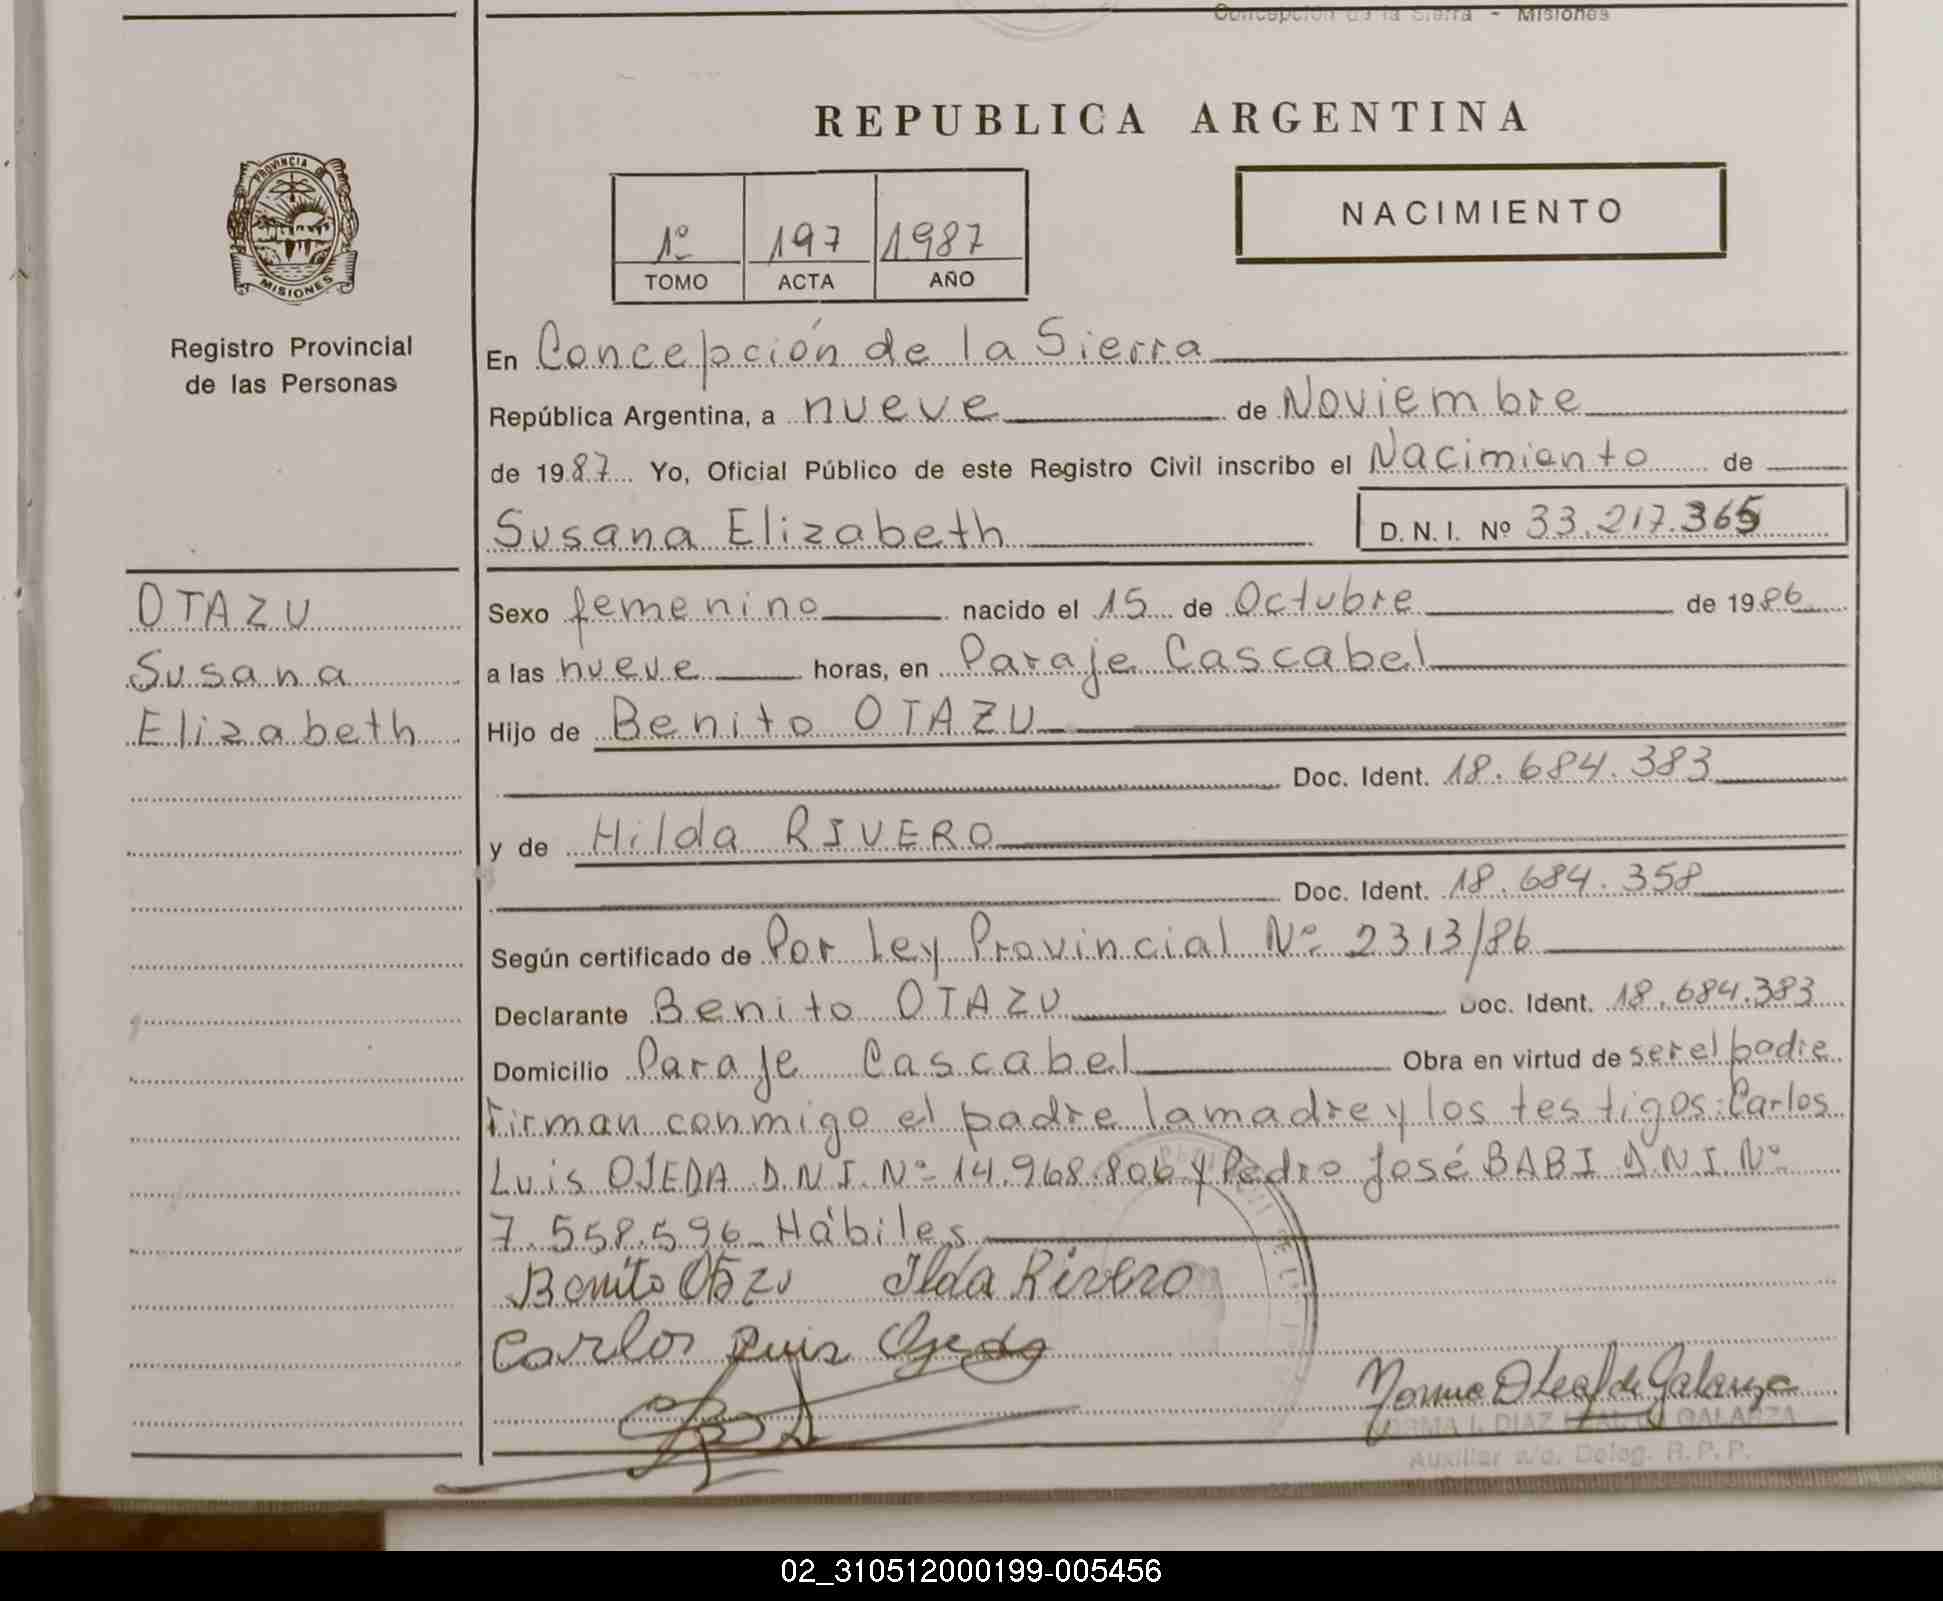 Concepción de la Sierra - Misiones
REPUBLICA ARGENTINA
PROVINCIA
MISIONES
Registro Provincial
de las Personas
1º 197 1987
TOMO ACTA AÑO
NACIMIENTO
En Concepción de la Sierra
República Argentina, a nueve de Noviembre
de 1987 Yo, Oficial Público de este Registro Civil inscribo el Nacimiento de
Susana Elizabeth D. N. I. Nº 33.217.365
OTAZU
Susana
Elizabeth
Sexo femenino nacido el 15 de Octubre de 1986
a las nueve horas, en Paraje Cascabel
Hijo de Benito OTAZU
Doc. Ident. 18.684.383
y de Hilda RIVERO
Doc. Ident. 18.684.358
Según certificado de Por Ley Provincial Nº 2313/86
Declarante Benito OTAZU Doc. Ident. 18.684.383
Domicilio Paraje Cascabel Obra en virtud de ser el padre
Firman conmigo el padre la madre y los testigos: Carlos
Luis OJEDA D.N.I. Nº 14.968.806 y Pedro José BABI D.N.I. Nº
7.558.596 Hábiles
Benito Otazu Ilda Rivero
Carlos Luis Ojeda
Norma D Leal de Galarza
NORMA I. DIAZ LEAL de GALARZA
Auxiliar a/c. Deleg. R. P. P.
02_310512000199-005456